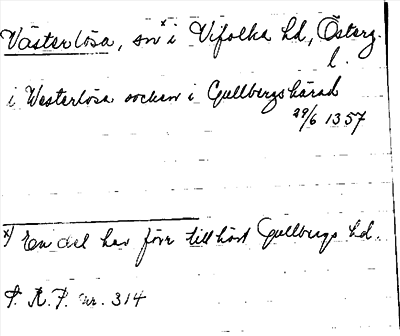 Västerlösa, sn x i Vifolka hd, Österg.
l.
i Westerlösa socken i Gullbergs härad
29/6 1357
x) En del har förr tillhört Gullbergs hd.
P. R. P. nr. 314